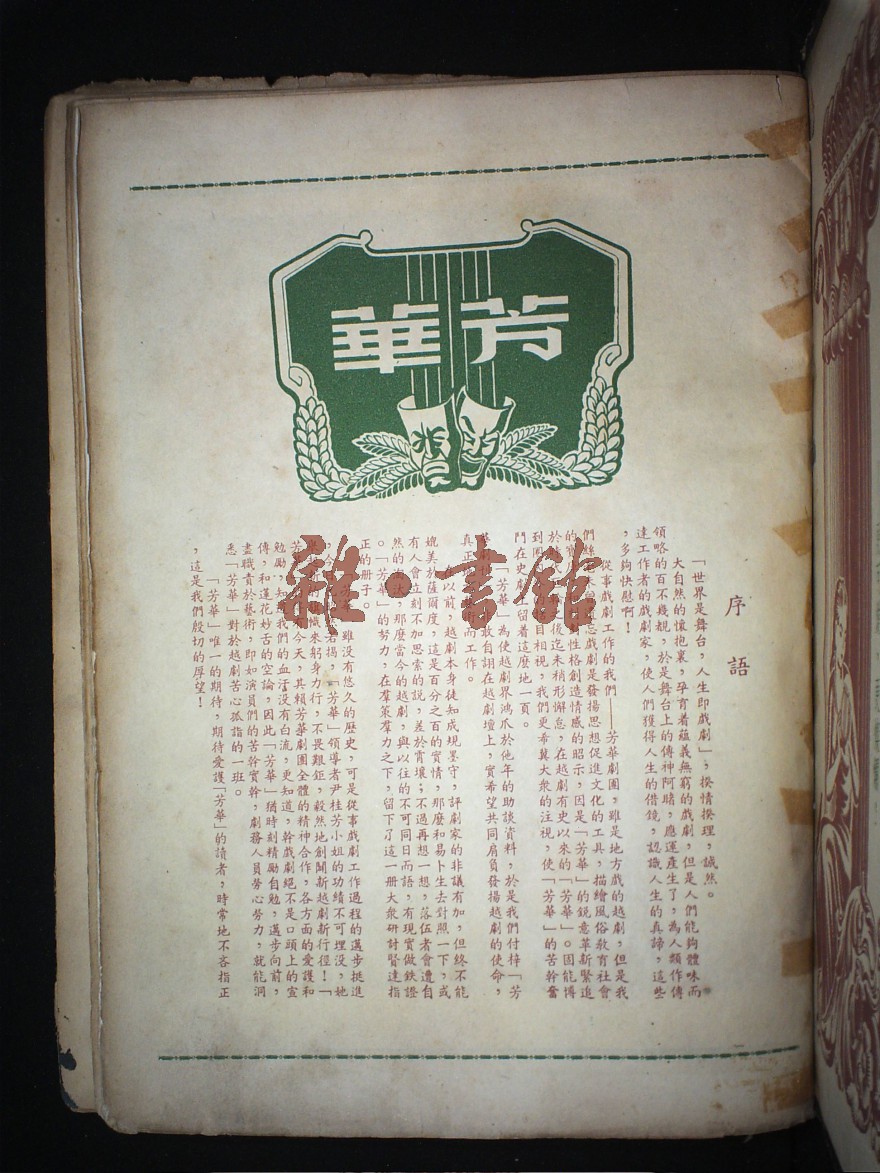 芳華
序語
「世界是舞台，人生即戲劇」，揆情揆理，誠然。
大自然的懷抱裏，孕育着蘊義無窮的戲劇，但是人們能夠體味而
領略的百不幾覩，於是舞台上的傳神阿睹，應運產生了，為人類作傳
達工作者的戲劇家，使人們獲得人生的借鏡，認識人生的真諦，這些
，多夠快慰啊！
從事戲劇工作的我們——芳華劇團，雖是地方戲的越劇，但是我
們
忘戲劇是發揚思想促進文化的工具，描繪風俗教育社會
的
性格創造情感的昭示，因是「芳華」的銳意革新緊進
於
後迄未稍形懈怠，在越劇有史以來的「芳華」。因能博
到
目相視，我們更希冀大衆的注視，使「芳華」的苦幹奮
鬥在史
上留着這麼地一頁。
「芳華」為使越劇界鴻爪於他年的助談資料，於是我們付梓「芳
敢自詡在越劇壇上，實希望共同肩負發揚越劇的使命，
真正
而工作。
以前，越劇本身徒知成規墨守，評劇家的非議有加，但終不能
媲美於薩爾度，這是百分之百的實情，那麼和易卜生去對照一下，或
有人會立刻不加思索的說，差於霄壤；不過再想一想，落伍者會遭自
然的
汰，那麼當今的越劇，與以往的不可同日而語，有現實做鉄證
。「芳華」的努力，在羣策羣力之下，留下了這一册大衆研討賢達指
正的册子。
雖没有悠久的歷史，可是從事戲劇工作過程的邁步挺進
，今
若揭，「芳華」領導者尹桂芳小姐的功績不可埋没，她
幟來躬身力行，不畏艱鉅，毅然地創闢新越劇新行徑！「
芳
今天，其賴芳華劇團全體的精神合作，各方面的愛護和
勉勵，知
我們的血汗没有白流，更知道，幹戲劇絕不是口頭上的宣
傳，和蓮花妙舌的空論，因此「芳華」猶時刻精勵自勉，邁步向前，
盡職責於藝術，即如演員們的苦幹實幹，劇務人員勞心勞力，就能洞
悉「芳華」對於越劇苦心孤詣的一班。
「芳華」唯一的期待，期待愛護「芳華」的讀者，時常地不吝指正
，這是我們殷切的厚望！
雜·書館